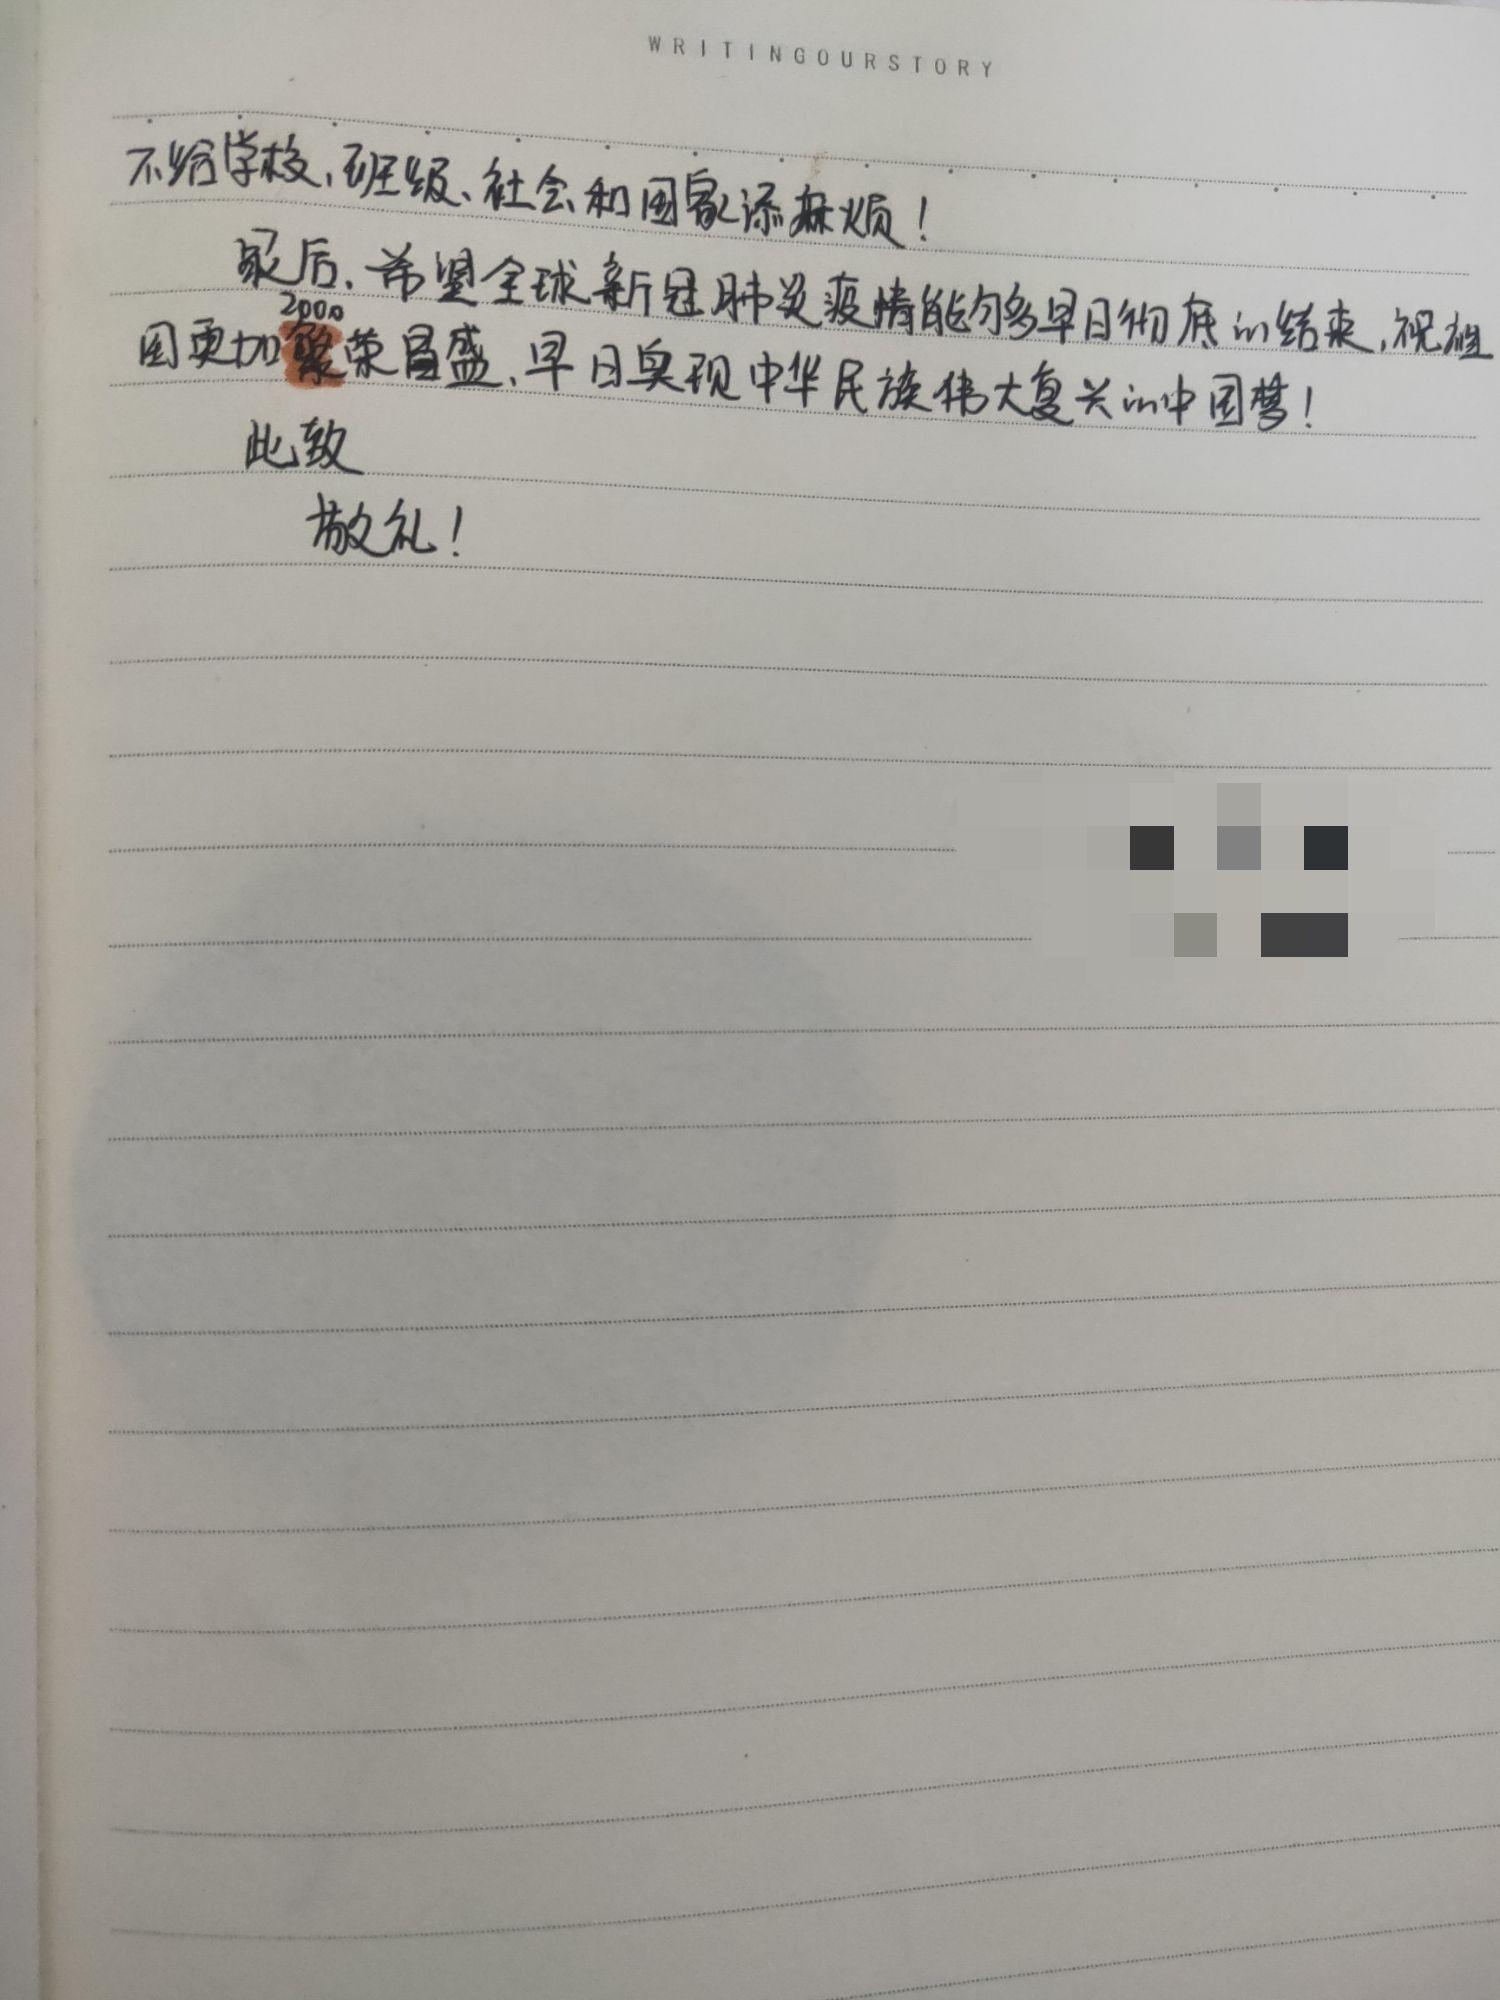 WRITINGOURSTORY
不给学校、班级、社会和国家添麻烦！
最后、希望全球新冠肺炎疫情能够早日彻底的结束,祝祖
2000
国更加繁荣昌盛、早日实现中华民族伟大复兴的中国梦！
此致
敬礼！